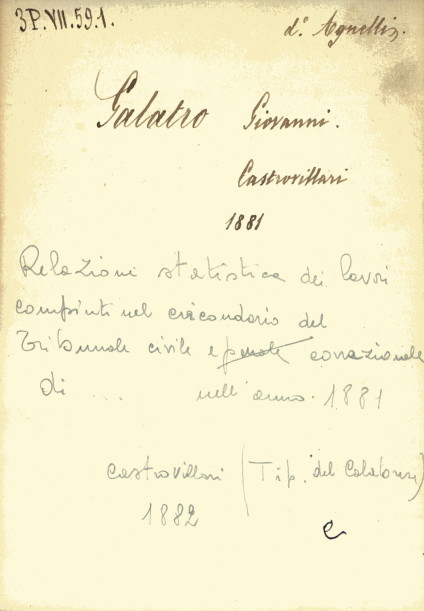 3P.VII.59.1.
d.° Agnellis.
Galatro Giovanni.
Castrovillari
1881
Relazioni statistica dei lavori
compiuti nel circondario del
Tribunale civile e penale corazionale
di ... nell'anno. 1881
Castrovillari (Tip. del Calabrese)
1882
e